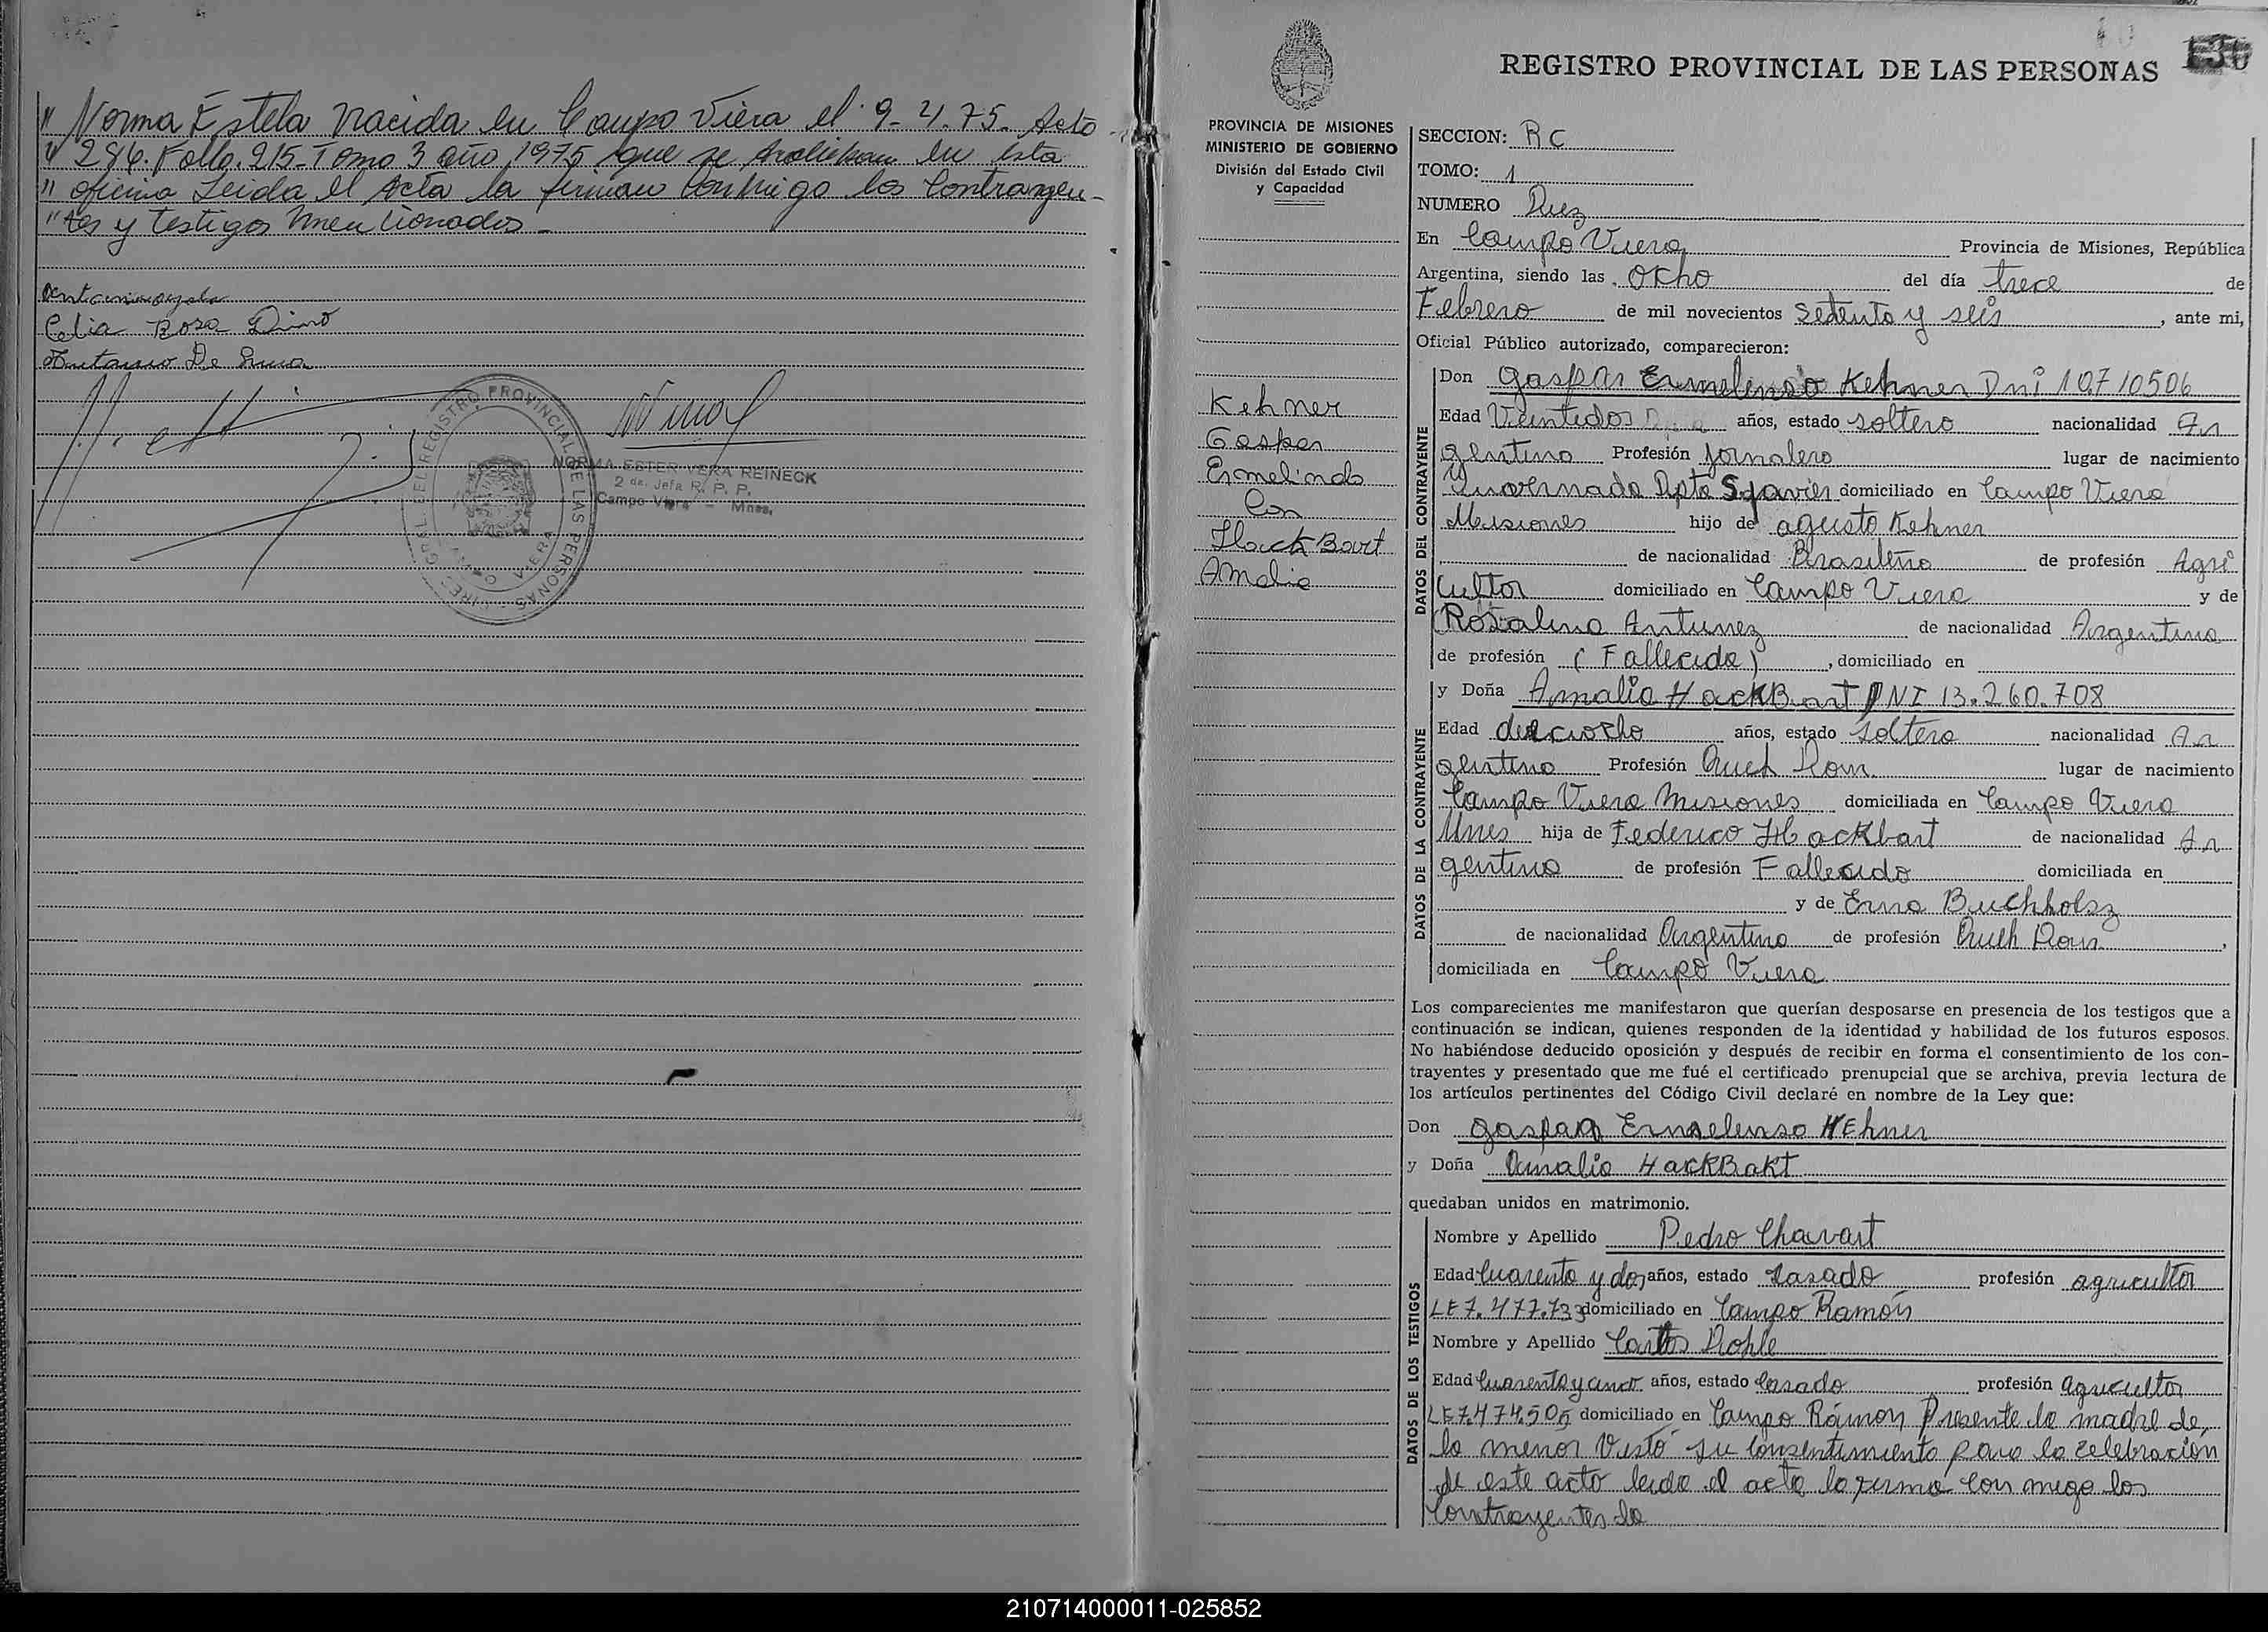 " Norma Estela nacida en Campo Viera el 9-4.75. Acto
" 284. Folio. 215-Tomo 3 año 1975 que se en esta
" oficina Leida el Acta la firman Conmigo los Contrayen-
" tes y testigos mencionados -
Celia Rosa
Antonio De
REGISTRO PROVINCIAL DE LAS PERSONAS
CAMPO VIERA
NORMA ESTER VERA REINECK
2 da. Jefa R. P. P.
Campo Viera - Mnes.
REGISTRO PROVINCIAL DE LAS PERSONAS
PROVINCIA DE MISIONES
MINISTERIO DE GOBIERNO
División del Estado Civil
y Capacidad
Kehner
Gaspar
Ermelindo
Con
HackBart
Amalia
SECCION: RC
TOMO: 1
NUMERO Diez
En Campo Viera Provincia de Misiones, República
Argentina, siendo las Ocho del día trece de
Febrero de mil novecientos Setenta y seis, ante mi,
Oficial Público autorizado, comparecieron:
DATOS DEL CONTRAYENTE
Don Gaspar Kehner Dni 10710506
Edad Veintidos años, estado soltero nacionalidad Ar
gentina Profesión Jornalero lugar de nacimiento
Dpto domiciliado en Campo Viera
Misiones hijo de agusto Kehner
de nacionalidad Brasileño de profesión Agri
cultor domiciliado en Campo Viera y de
Rosalina Antunez de nacionalidad Argentina
de profesión (Fallecida), domiciliado en
DATOS DE LA CONTRAYENTE
y Doña Amalia HackBart DNI 13.260.708
Edad dieciocho años, estado soltera nacionalidad Ar
gentina Profesión lugar de nacimiento
Campo Viera Misiones domiciliada en Campo Viera
Mnes hija de Federico Hackbart de nacionalidad Ar
gentino de profesión Fallecido domiciliada en
y de Erna Buchholsz
de nacionalidad Argentina de profesión ,
domiciliada en Campo Viera
Los comparecientes me manifestaron que querían desposarse en presencia de los testigos que a
continuación se indican, quienes responden de la identidad y habilidad de los futuros esposos.
No habiéndose deducido oposición y después de recibir en forma el consentimiento de los con-
trayentes y presentado que me fué el certificado prenupcial que se archiva, previa lectura de
los artículos pertinentes del Código Civil declaré en nombre de la Ley que:
Don Gaspar Kehner
y Doña Amalia HackBakt
quedaban unidos en matrimonio.
DATOS DE LOS TESTIGOS
Nombre y Apellido Pedro Chavart
Edad Cuarenta y dos años, estado Casado profesión agricultor
LE 7.477.733 domiciliado en Campo Ramón
Nombre y Apellido Carlos Dohle
Edad Cuarenta y cinco años, estado Casado profesión agricultor
LE7.474.505 domiciliado en Campo Ramón Presente la madre de
la menor su consentimiento para la celebracion
de este acto leida el acta la firma con migo los
Contrayentes la
210714000011-025852